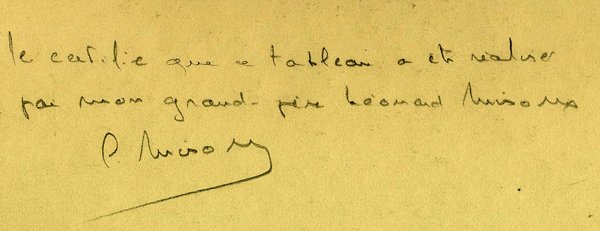 Je certifie que ce tableau a été réalisé
par mon grand-père Léonard Misonne
P. Misonne